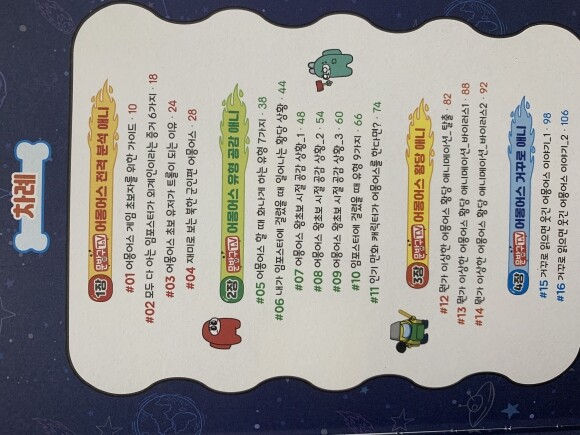 차례
1장 문방구TV 어몽어스 전격 분석 애니
#01 어몽어스 게임 초보자를 위한 가이드 · 10
#02 모두 다 아는 임포스터가 외계인이라는 증거 6가지 · 18
#03 어몽어스 초보 유저가 트롤이 되는 이유 · 24
#04 재미로 보는 북한 군인편 어몽어스 · 28
2장 문방구TV 어몽어스 유형 공감 애니
#05 어몽어스 할 때 화나게 하는 유형 7가지 · 38
#06 내가 임포스터에 걸렸을 때 일어나는 황당 상황 · 44
#07 어몽어스 왕초보 시절 공감 상황_1 · 48
#08 어몽어스 왕초보 시절 공감 상황_2 · 54
#09 어몽어스 왕초보 시절 공감 상황_3 · 60
#10 임포스터에 걸렸을 때 유형 9가지 · 66
#11 인기 만화 캐릭터가 어몽어스를 한다면? · 74
3장 문방구TV 어몽어스 황당 애니
#12 뭔가 이상한 어몽어스 황당 애니메이션_탈출 · 82
#13 뭔가 이상한 어몽어스 황당 애니메이션_바이러스1 · 88
#14 뭔가 이상한 어몽어스 황당 애니메이션_바이러스2 · 92
4장 문방구TV 어몽어스 거꾸로 애니
#15 거꾸로 읽으면 웃긴 어몽어스 이야기_1 · 98
#16 거꾸로 읽으면 웃긴 어몽어스 이야기_2 · 106